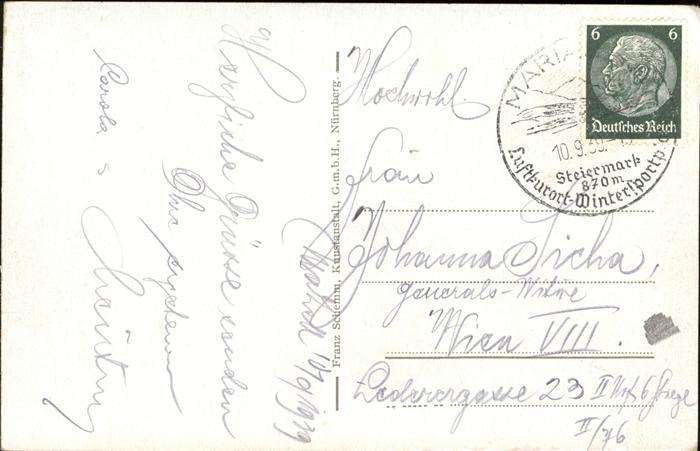 Herzliche Grüsse senden
Ihre
Carola &
9/9 1939
Franz Schemm, Kunstanstalt, G.m.b.H., Nürnberg.
6 6
Deutsches Reich
MARIA
10.9.39.
Steiermark
870 m
Luftkurort-Wintersportp
Hochwohl.
Frau
Johanna Sicha,
Generals-Witwe
Wien VIII.
Lederergasse 23 II 6 Stiege
II/76